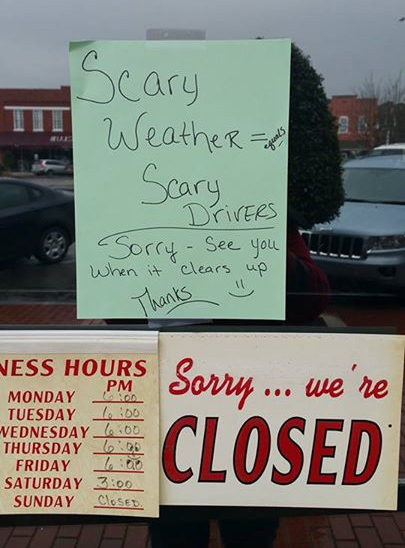 Scary
Weather = equals
Scary
Drivers
Sorry - See you
when it clears up
Thanks
NESS HOURS
PM
MONDAY 6:00
TUESDAY 6:00
WEDNESDAY 6:00
THURSDAY 6:00
FRIDAY 6:00
SATURDAY 3:00
SUNDAY Closed
Sorry... we're
CLOSED